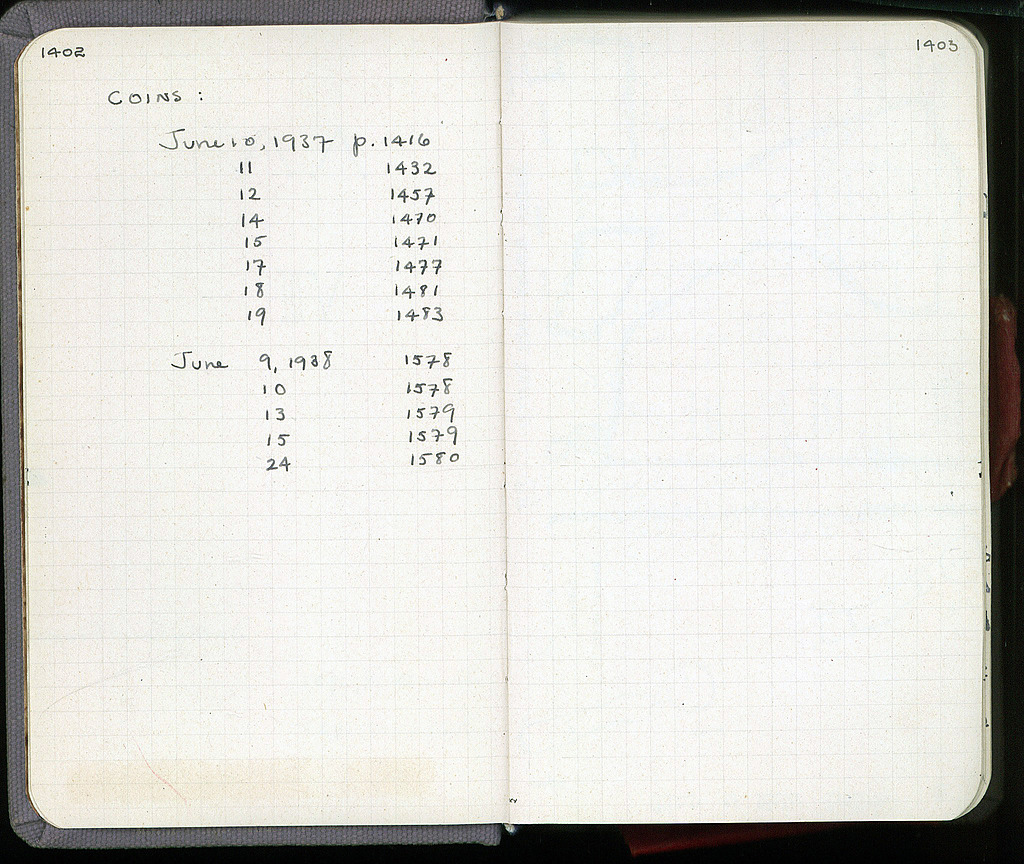 1402
COINS :
June 10, 1937 p. 1416
11 1432
12 1457
14 1470
15 1471
17 1477
18 1481
19 1483
June 9, 1938 1578
10 1578
13 1579
15 1579
24 1580
1403